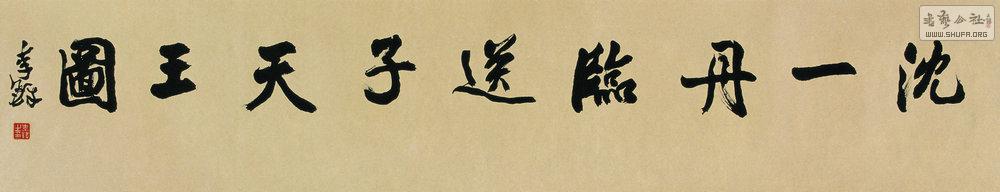 沈一丹臨送子天王圖
李鐸
書藝公社
WWW.SHUFA.ORG